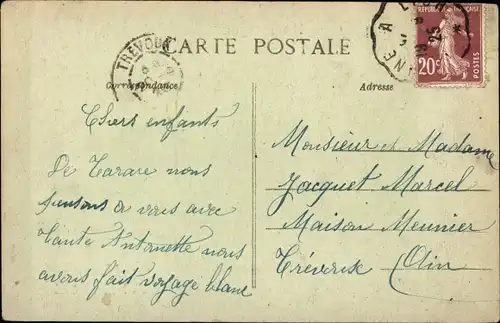 CARTE POSTALE
TREVOUX
RÉPUBLIQUE FRANÇAISE
20c
POSTES
Correspondance
Adresse
Chers enfants
De Tarare nous
pensons a vous avec
Tante Antoinette nous
avons fait voyage blanc
Monsieur et Madame
Jacquet Marcel
Maison Meunier
Trévoux Ain